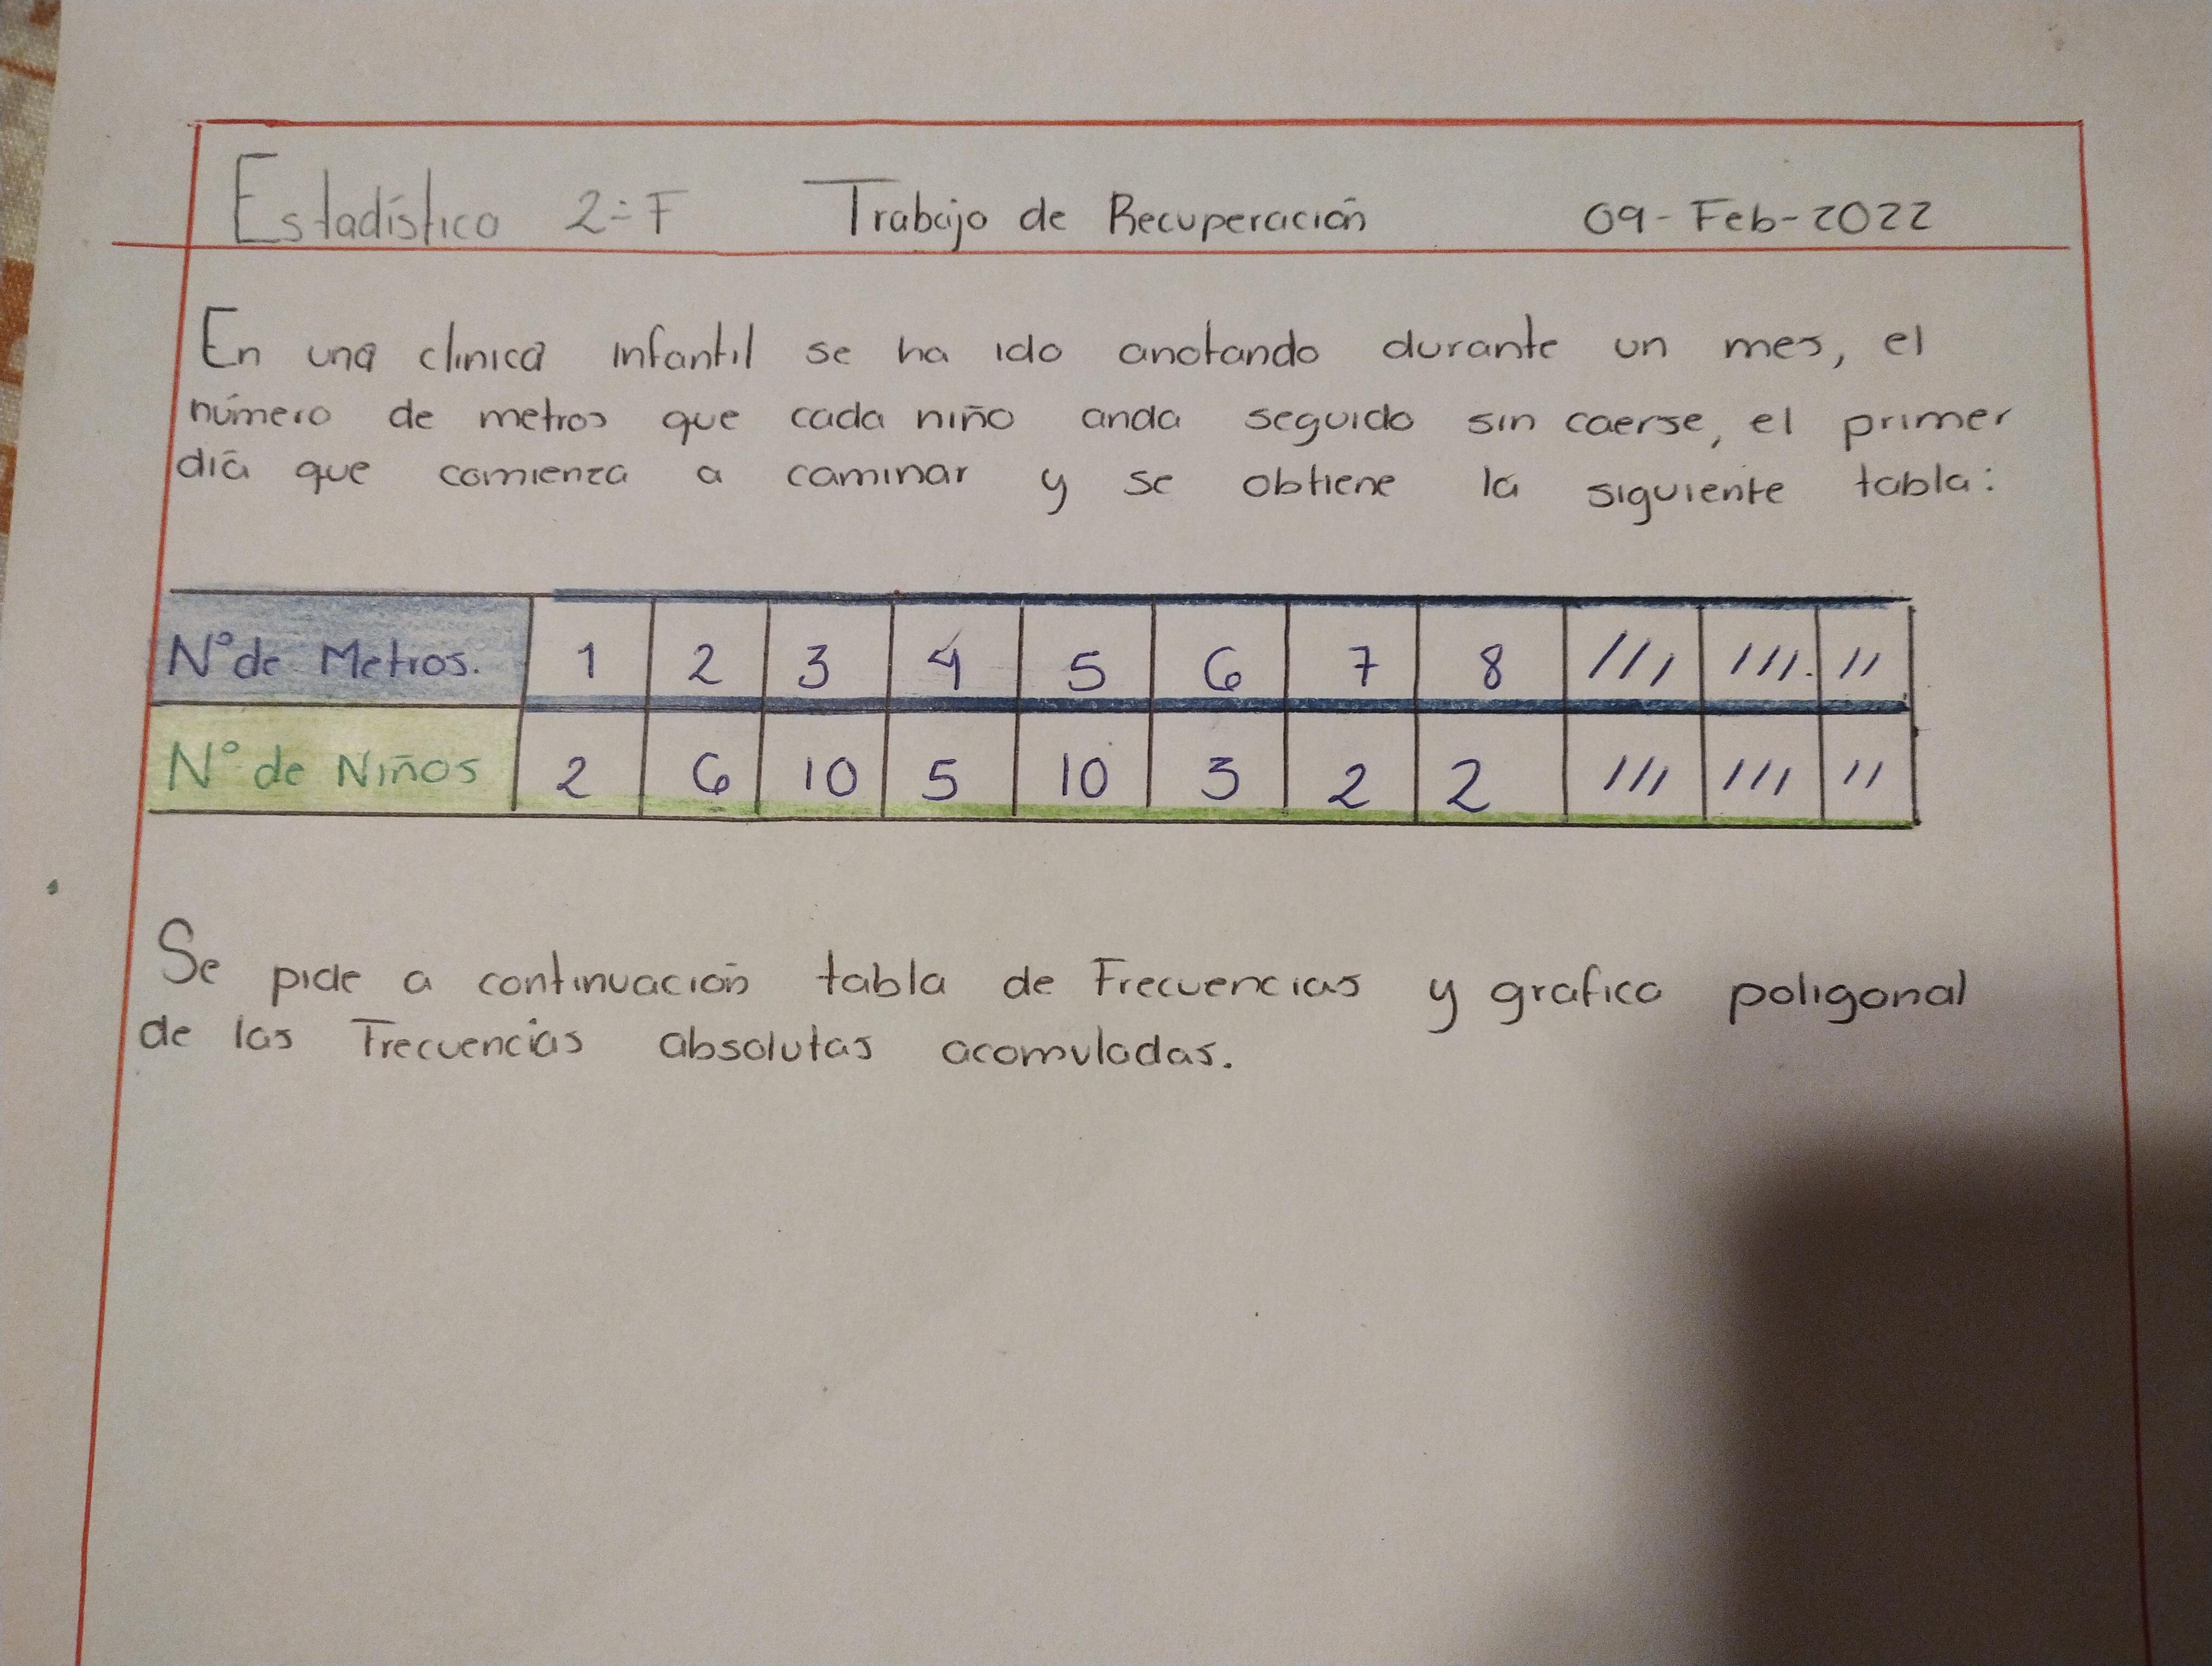 Estadístico 2=F Trabajo de Recuperación 09-Feb-2022
En una clinica infantil se ha ido anotando durante un mes, el
número de metros que cada niño anda seguido sin caerse, el primer
día que comienza a caminar y se obtiene la siguiente tabla:
N° de Metros. 1 2 3 4 5 6 7 8 /// ///. //
N° de Niños 2 6 10 5 10 3 2 2 /// /// //
Se pide a continuación tabla de Frecuencias y grafico poligonal
de las Frecuencias absolutas acomuladas.